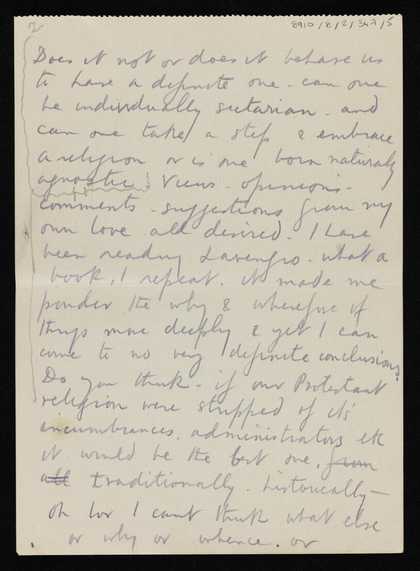 2
8910/8/2/343/5
Does it not or does it behave us
to have a definite one - can one
be individually sectarian - and
can one take a step & embrace
a religion or is one born naturally
agnostic? Views - opinions -
comments - suggestions from my
own love all desired. I have
been reading Lavengro - what a
book, I repeat. it made me
ponder the why & wherefore of
things more deeply & yet I can
come to no very definite conclusions.
Do you think - if our Protestant
religion were stripped of its
encumbrances, administrators etc
it would be the best one, from
all traditionally - historically -
oh lor I cant think what else
or why or whence. or